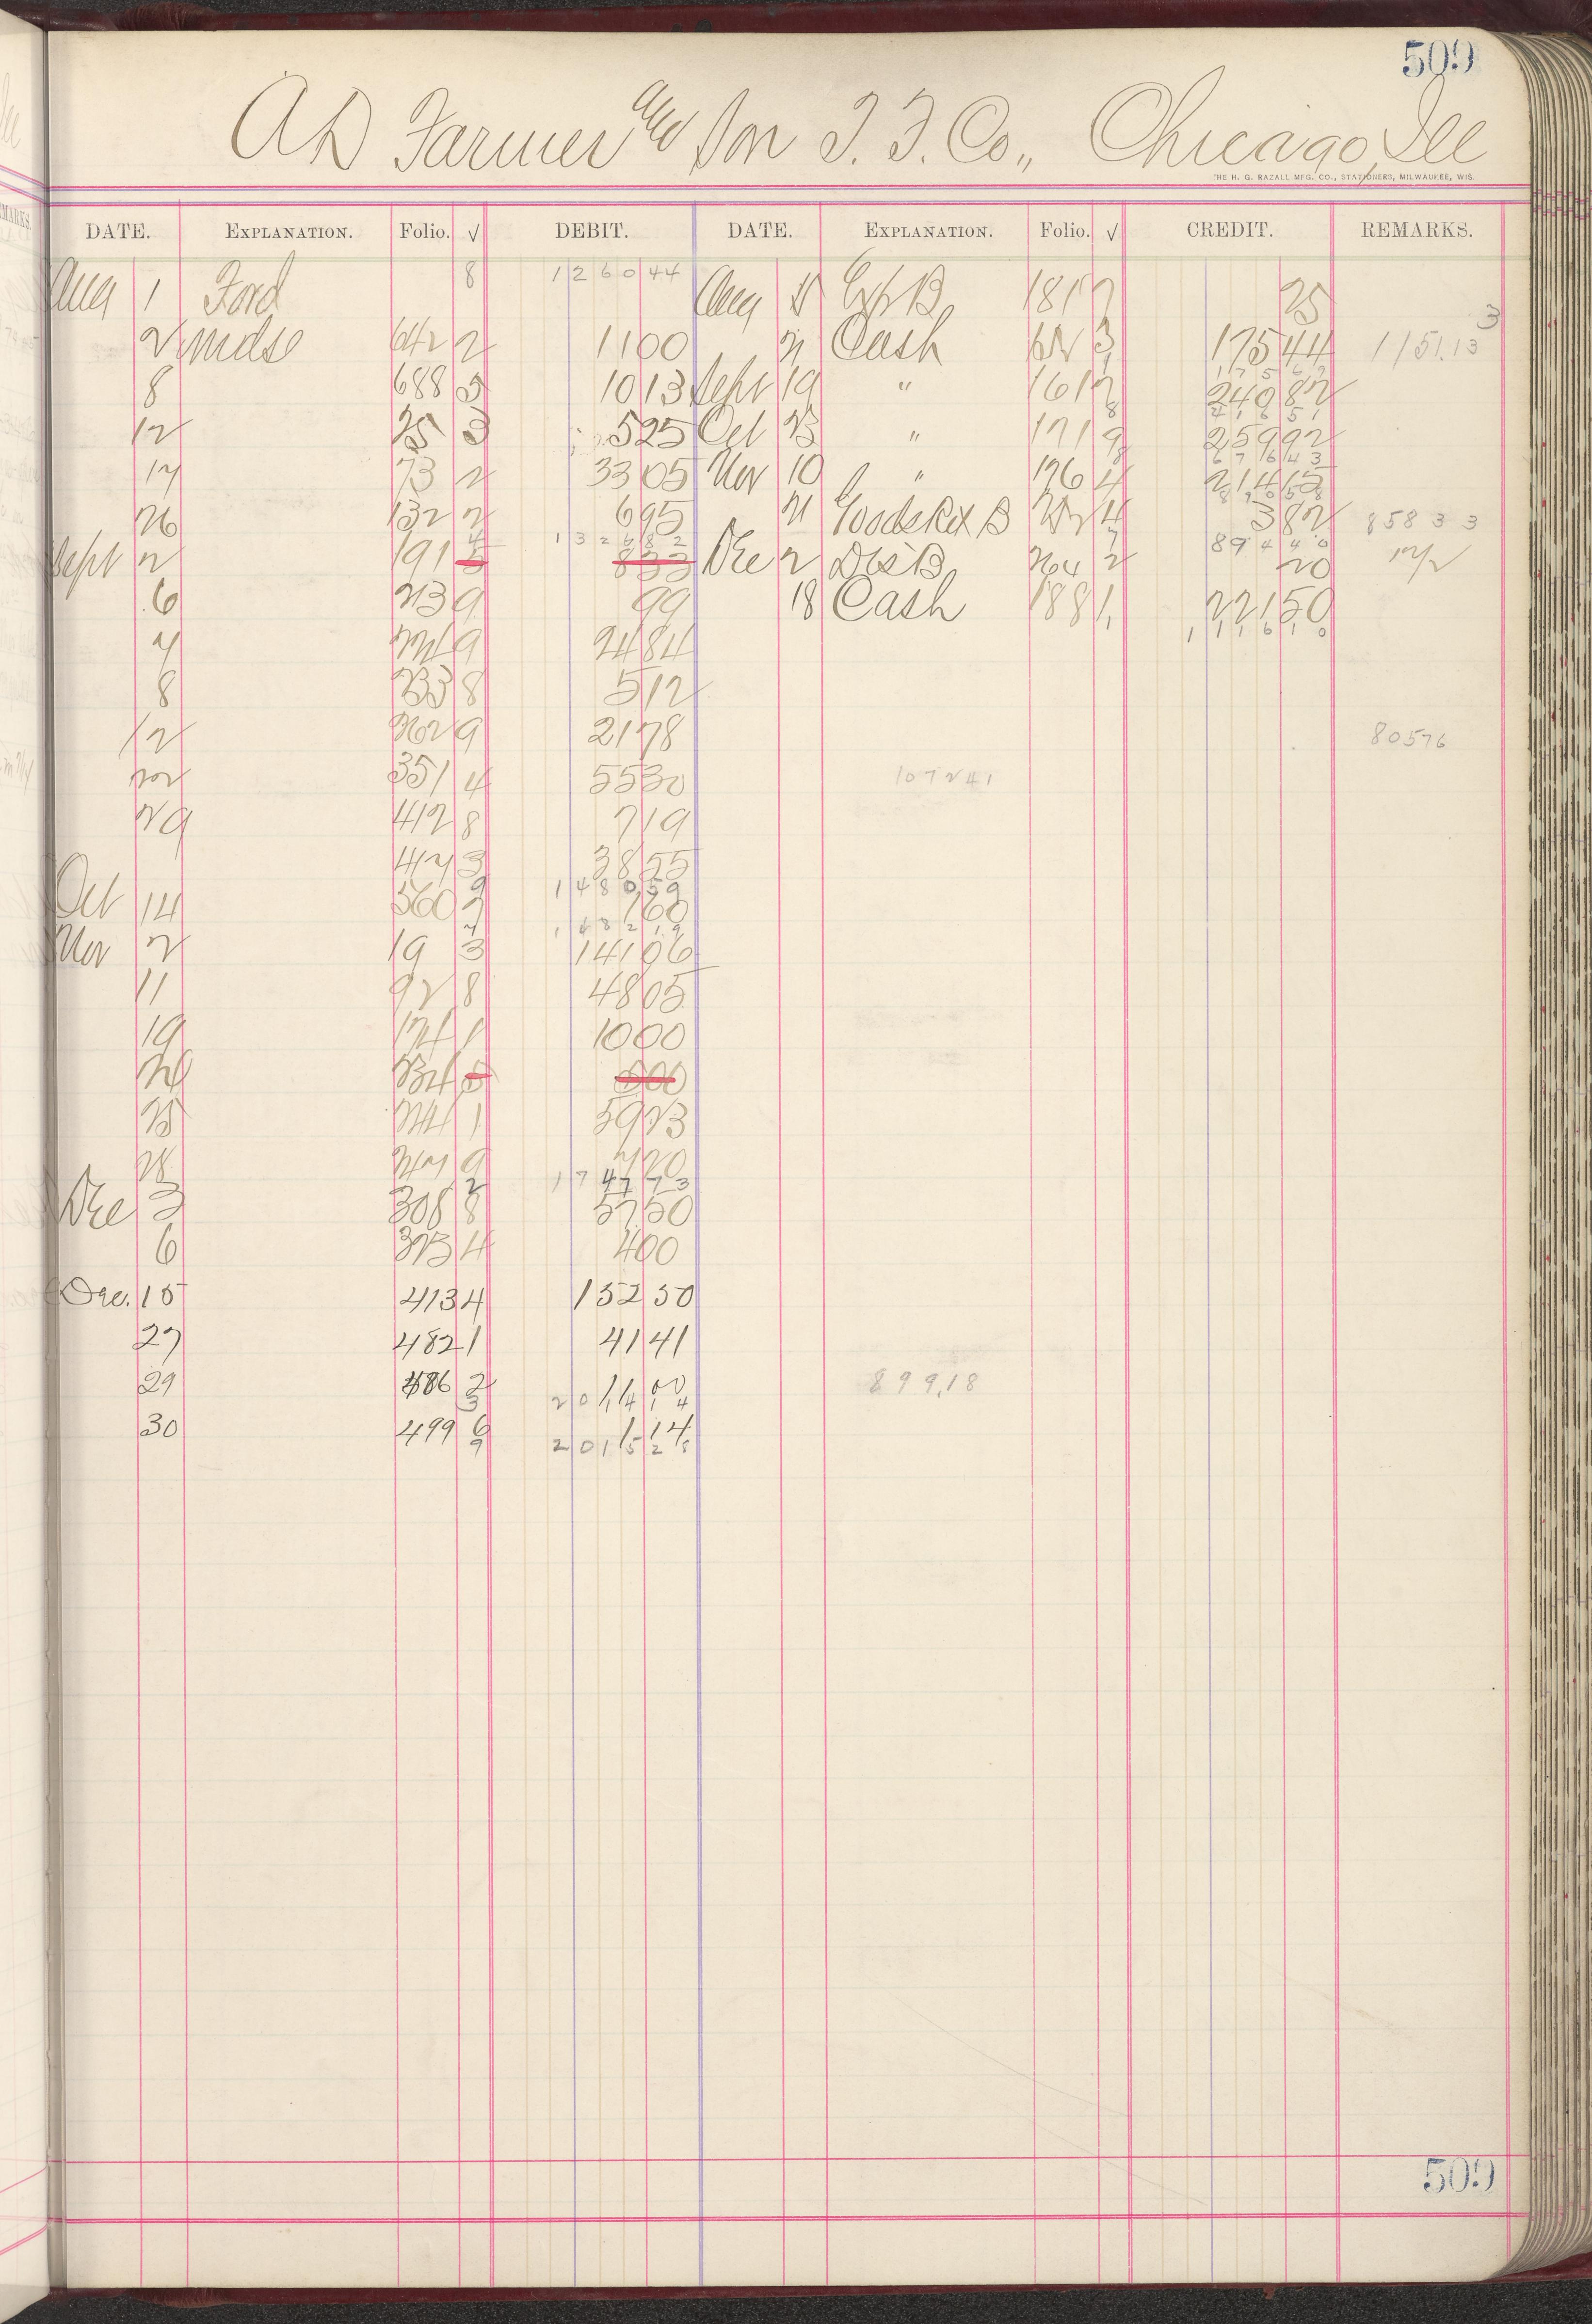 509
A D Farmer and Son T. F. Co., Chicago, Ill
THE H. G. RAZALL MFG. CO., STATIONERS, MILWAUKEE, WIS.
DATE. EXPLANATION. Folio. √ DEBIT. DATE. EXPLANATION. Folio. √ CREDIT. REMARKS.
Aug 1 Ford 8 1260 44 Aug Exp B 181 7 25
2 mdse 642 2 11 00 Cash 3 175 44 1151.13
8 688 5 10 13 Sept 19 " 161 240 82
12 25 3 5 25 Oct 23 " 171 9 259 92
17 73 2 33 05 Nov 10 " 176 4 214 15
26 132 2 6 95 21 Goods Ret B 4 3 82 858 33
1326 82 894 40
Sept 2 191 5 8 33 Dec 2 Dis B 264 2 20
6 213 9 99 18 Cash 188 1 221 50
7 9 24 84 1116 10
8 233 8 5 12
12 262 9 21 78 80576
22 351 4 55 30 107241
29 412 8 7 19
427 3 38 55
1480 59
Oct 14 560 1 60
Nov 2 19 3 141 06
11 92 8 48 05
19 174 1 10 00
234 5
25 244 1 59 23
28 247 9 7 20
1747 73
Dec 3 308 8 57 50
6 323 4 4 00
Dec. 15 413 4 152 50
27 482 1 41 41
29 486 2 11 00 899.18
2014 14
30 499 6 1 14
2015 28
509